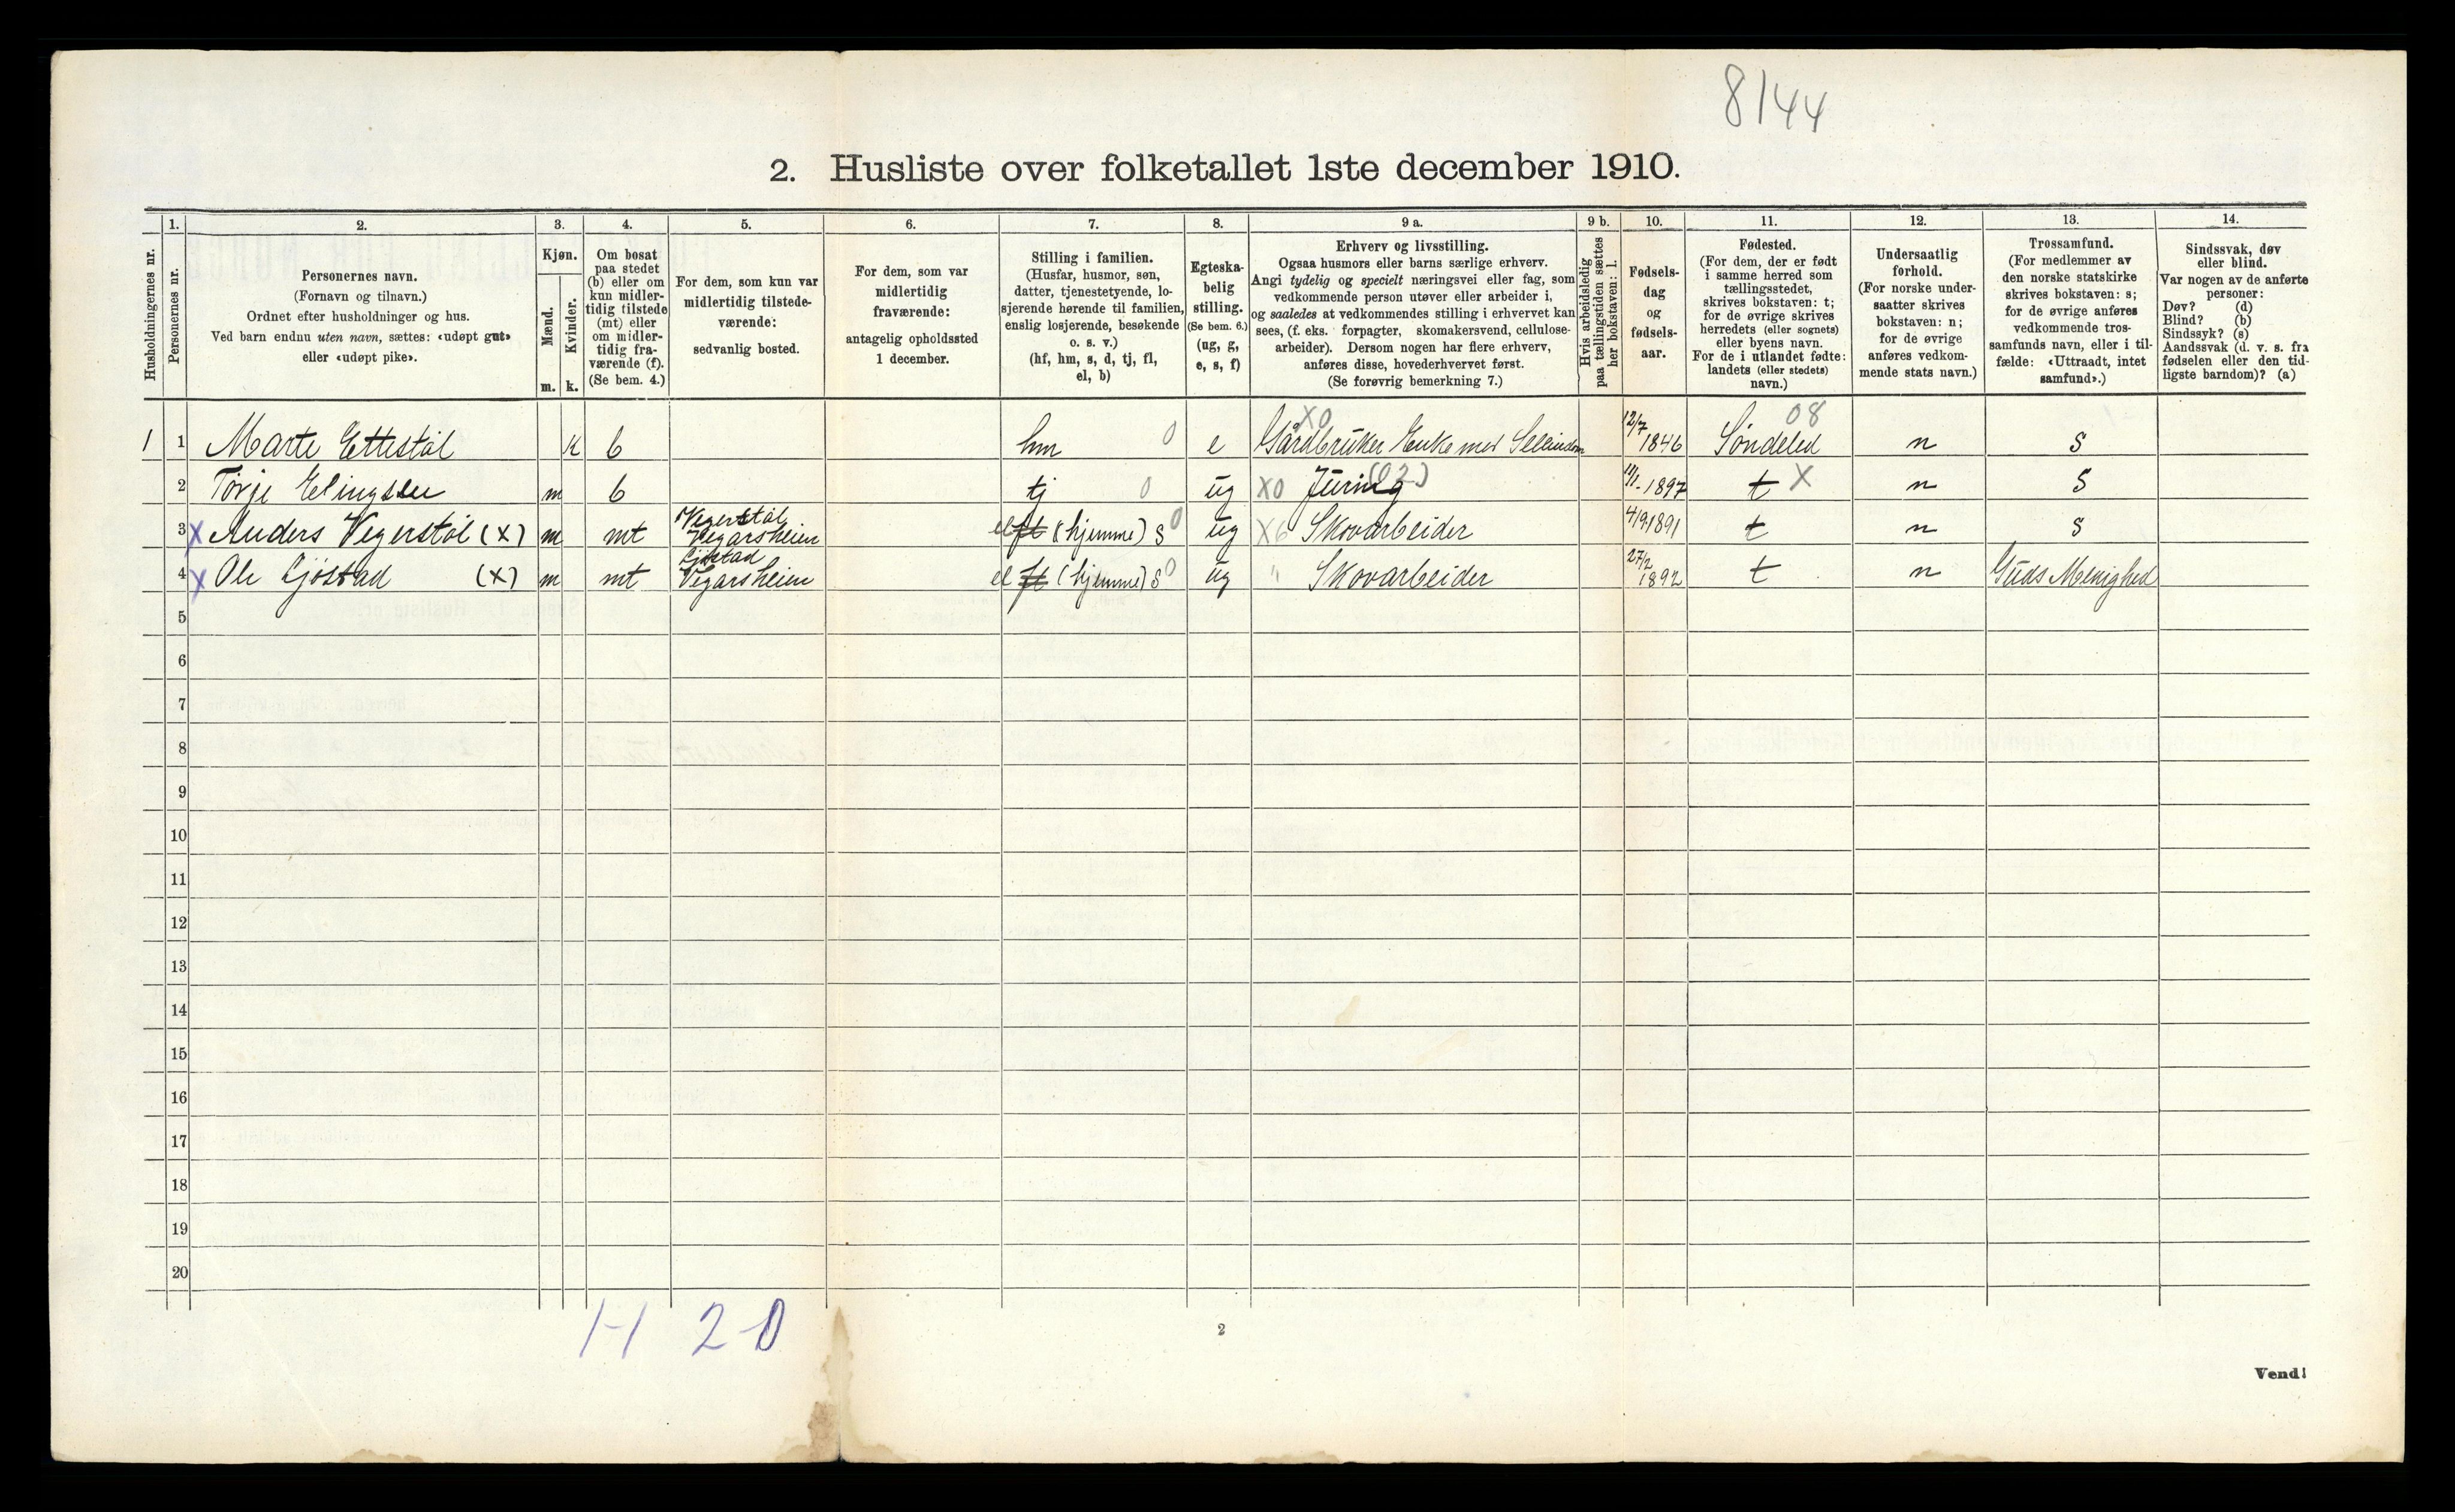 8144
2. Husliste over folketallet 1ste december 1910.
Husholdningernes nr.
1.
Personernes nr.
2.
Personernes navn.
(Fornavn og tilnavn.)
Ordnet efter husholdninger og hus.
Ved barn endnu uten navn, sættes: «udøpt gut»
eller «udøpt pike».
3.
Kjøn.
Mænd.
Kvinder.
m. k.
4.
Om bosat
paa stedet
(b) eller om
kun midler-
tidig tilstede
(mt) eller
om midler-
tidig fra-
værende (f).
(Se bem. 4.)
5.
For dem, som kun var
midlertidig tilstede-
værende:
sedvanlig bosted.
6.
For dem, som var
midlertidig
fraværende:
antagelig opholdssted
1 december.
7.
Stilling i familien.
(Husfar, husmor, søn,
datter, tjenestetyende, lo-
sjerende hørende til familien,
enslig losjerende, besøkende
o. s. v.)
(hf, hm, s, d, tj, fl,
el, b)
8.
Egteska-
belig
stilling.
(Se bem. 6.)
(ug, g,
e, s, f)
9 a.
Erhverv og livsstilling.
Ogsaa husmors eller barns særlige erhverv.
Angi tydelig og specielt næringsvei eller fag, som
vedkommende person utøver eller arbeider i,
og saaledes at vedkommendes stilling i erhvervet kan
sees, (f. eks. forpagter, skomakersvend, cellulose-
arbeider). Dersom nogen har flere erhverv,
anføres disse, hovederhvervet først.
(Se forøvrig bemerkning 7.)
9 b.
Hvis arbeidsledig
paa tællingstiden sættes
her bokstaven: l.
10.
Fødsels-
dag
og
fødsels-
aar.
11.
Fødested.
(For dem, der er født
i samme herred som
tællingsstedet,
skrives bokstaven: t;
for de øvrige skrives
herredets (eller sognets)
eller byens navn.
For de i utlandet fødte:
landets (eller stedets)
navn.)
12.
Undersaatlig
førhold.
(For norske under-
saatter skrives
bokstaven: n;
for de øvrige
anføres vedkom-
mende stats navn.)
13.
Trossamfund.
(For medlemmer av
den norske statskirke
skrives bokstaven: s;
for de øvrige anføres
vedkommende tros-
samfunds navn, eller i til-
fælde: «Uttraadt, intet
samfund».)
14.
Sindssvak, døv
eller blind.
Var nogen av de anførte
personer:
Døv? (d)
Blind? (b)
Sindssyk? (s)
Aandssvak (d. v. s. fra
fødselen eller den tid-
ligste barndom)? (a)
X0 08
1 1 Marte Ettestøl k b hm 0 e Gårdbruker Enke med 12/7 1846 Søndeled n s
2 Tørje Elingsen m b tj 0 ug X0 (03) 1897 t X n s
Vegerstøl
3 X Anders Vegerstøl (X) m mt Vegarsheien el ft (hjemme) s 0 ug X6 Skovarbeider 4/9.1891 t n s
Ljøstad
4 X Ole Ljøstad (X) m mt Vegarsheien el ft (hjemme) s 0 ug " Skovarbeider 27/2 1892 t n Guds Menighed
5
6
7
8
9
10
11
12
13
14
15
16
17
18
19
20
1-1 2-0
2
Vend!